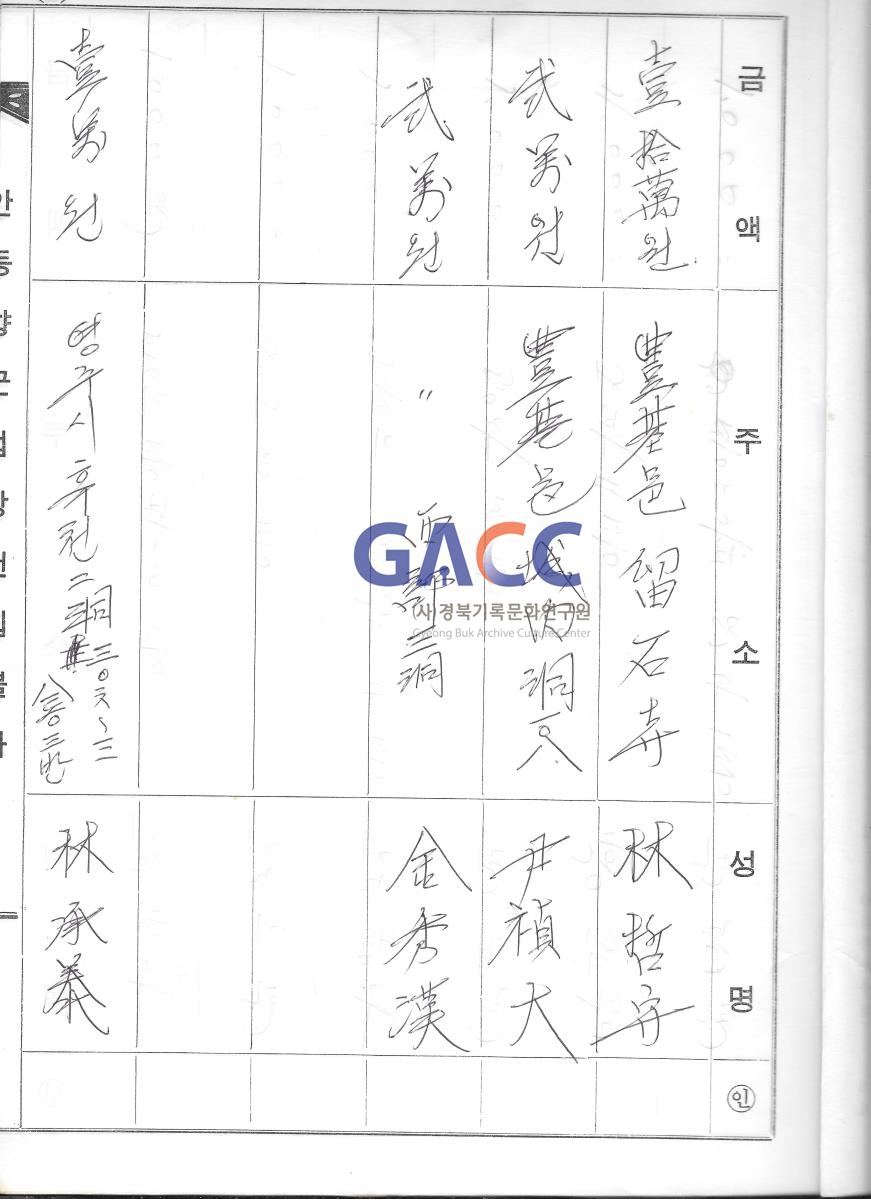 금액
주소
성명
인
壹拾萬원
豊基邑 留石寺
林哲守
弐万원
豊基邑 城内洞 一〇八
尹禎大
弐万원
〃 西部二洞
金秀漢
壹万원
영주시 휴천二洞
三〇六~三
三반
林承義
GACC
(사)경북기록문화연구원
Gyeong Buk Archive Culture Center